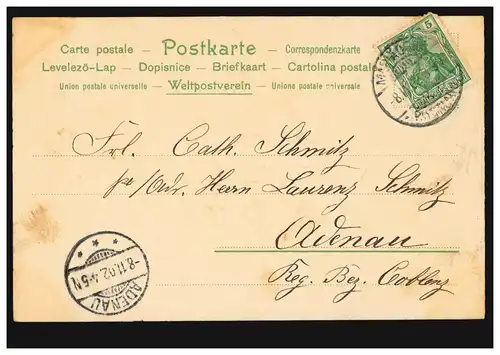 Carte postale — Postkarte — Correspondenzkarte
Levelezö-Lap — Dopisnice — Briefkaart — Cartolina postale
Union postale universelle — Weltpostverein — Unions postale universale
5
Frl. Cath. Schmitz
p/Adr. Herrn Laurenz Schmitz
Adenau
Reg. Bez. Coblenz
-8.11.02.4-5N
ADENAU